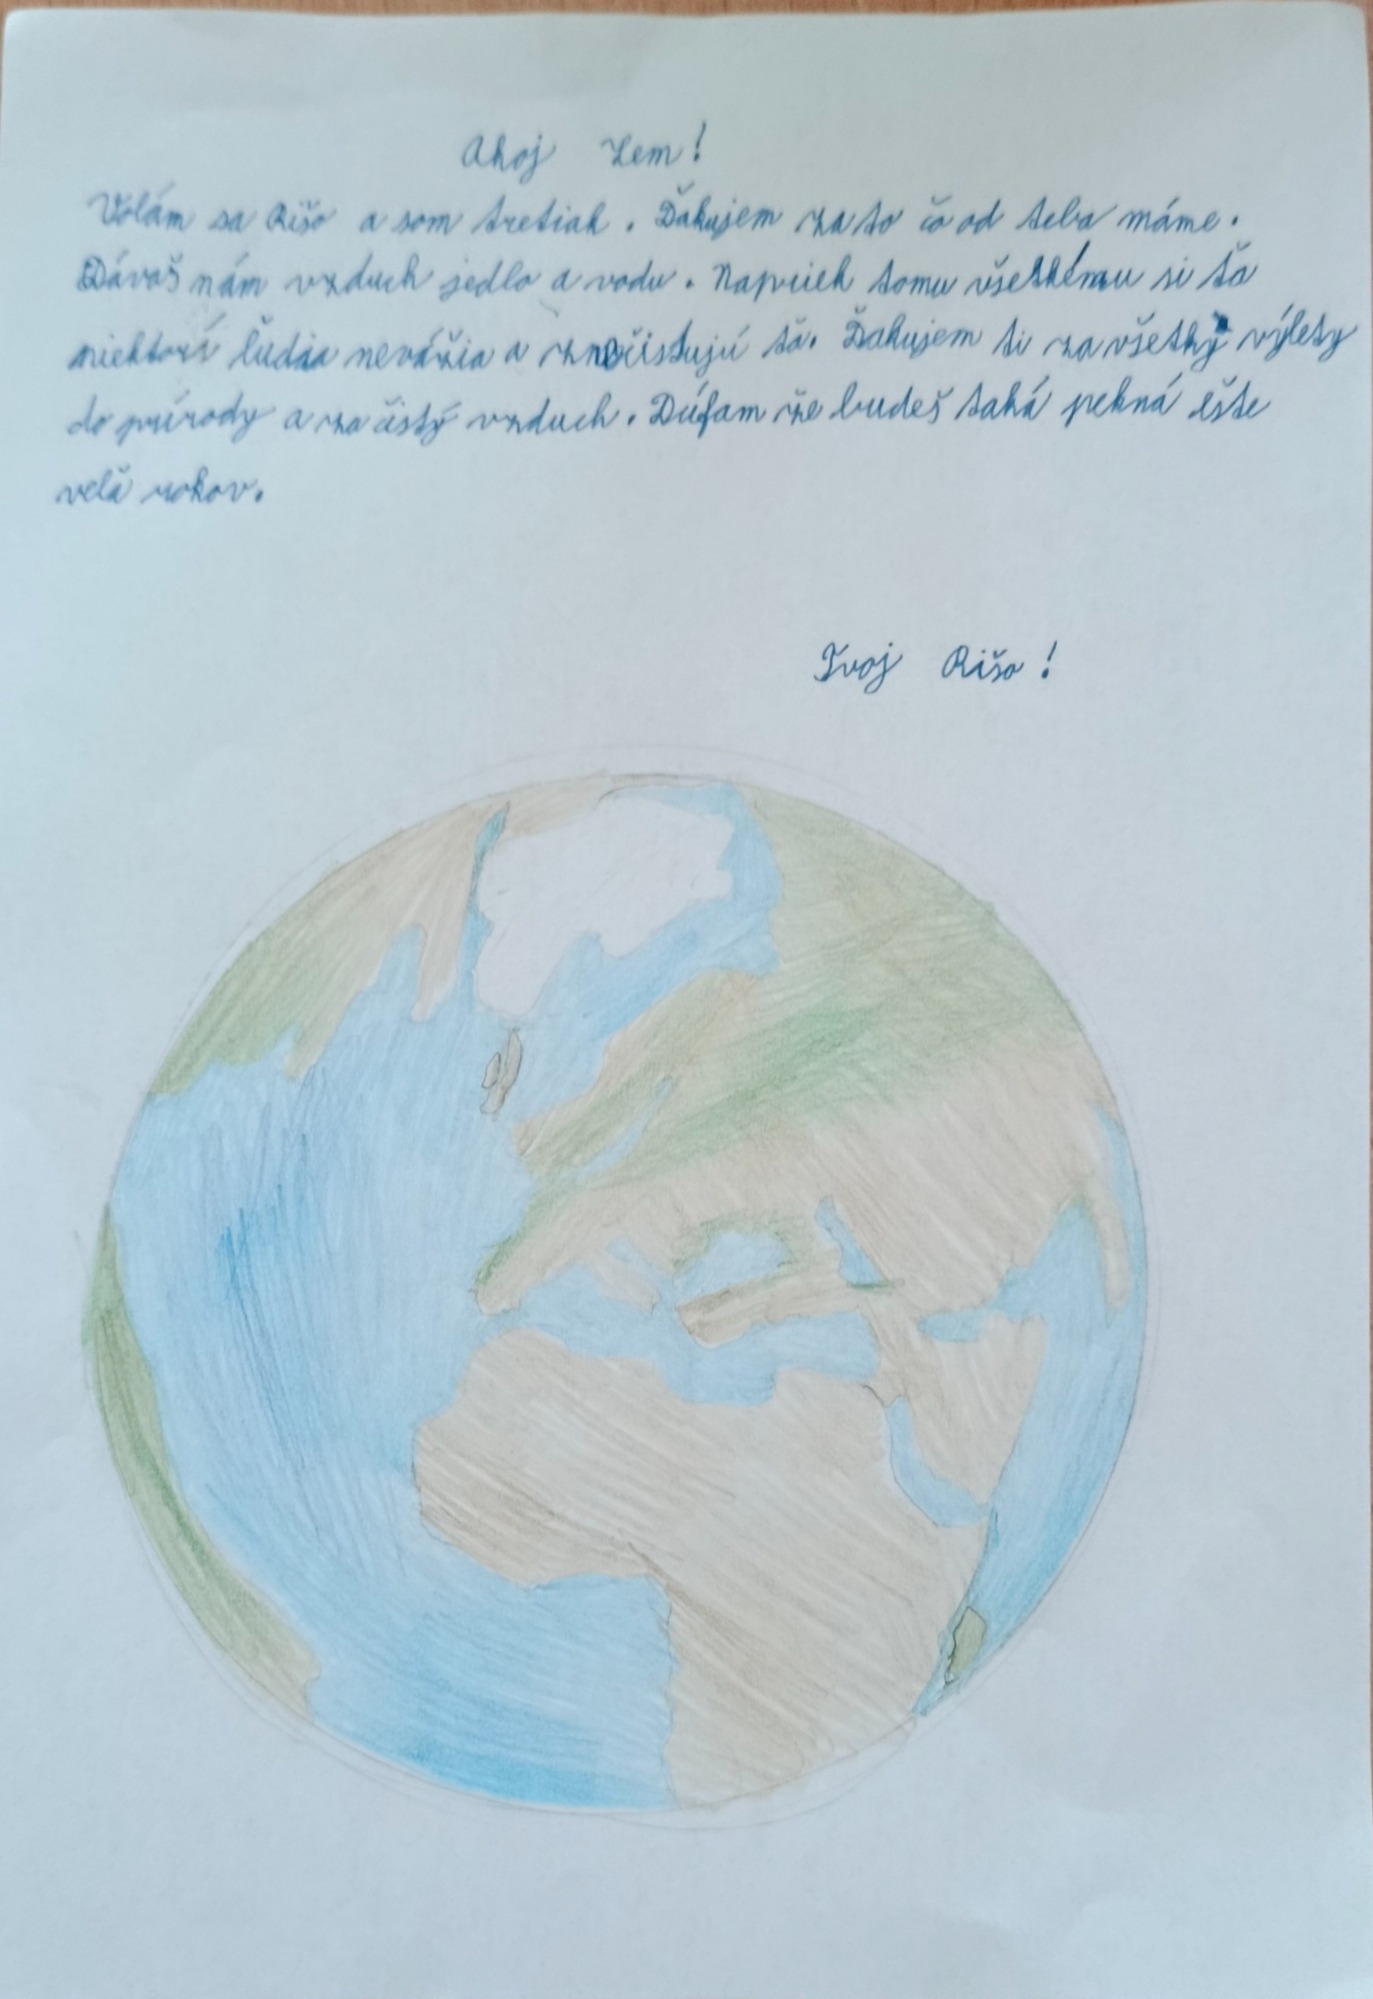 Ahoj Zem!
Volám sa Rišo a som tretiak. Ďakujem za to čo od teba máme.
Dávaš nám vzduch jedlo a vodu. Napriek tomu všetkému si ťa
niektorí ľudia nevážia a znečistujú ťa. Ďakujem ti za všetky výlety
do prírody a za čistý vzduch. Dúfam že budeš taká pekná ešte
veľa rokov.
Tvoj Rišo!